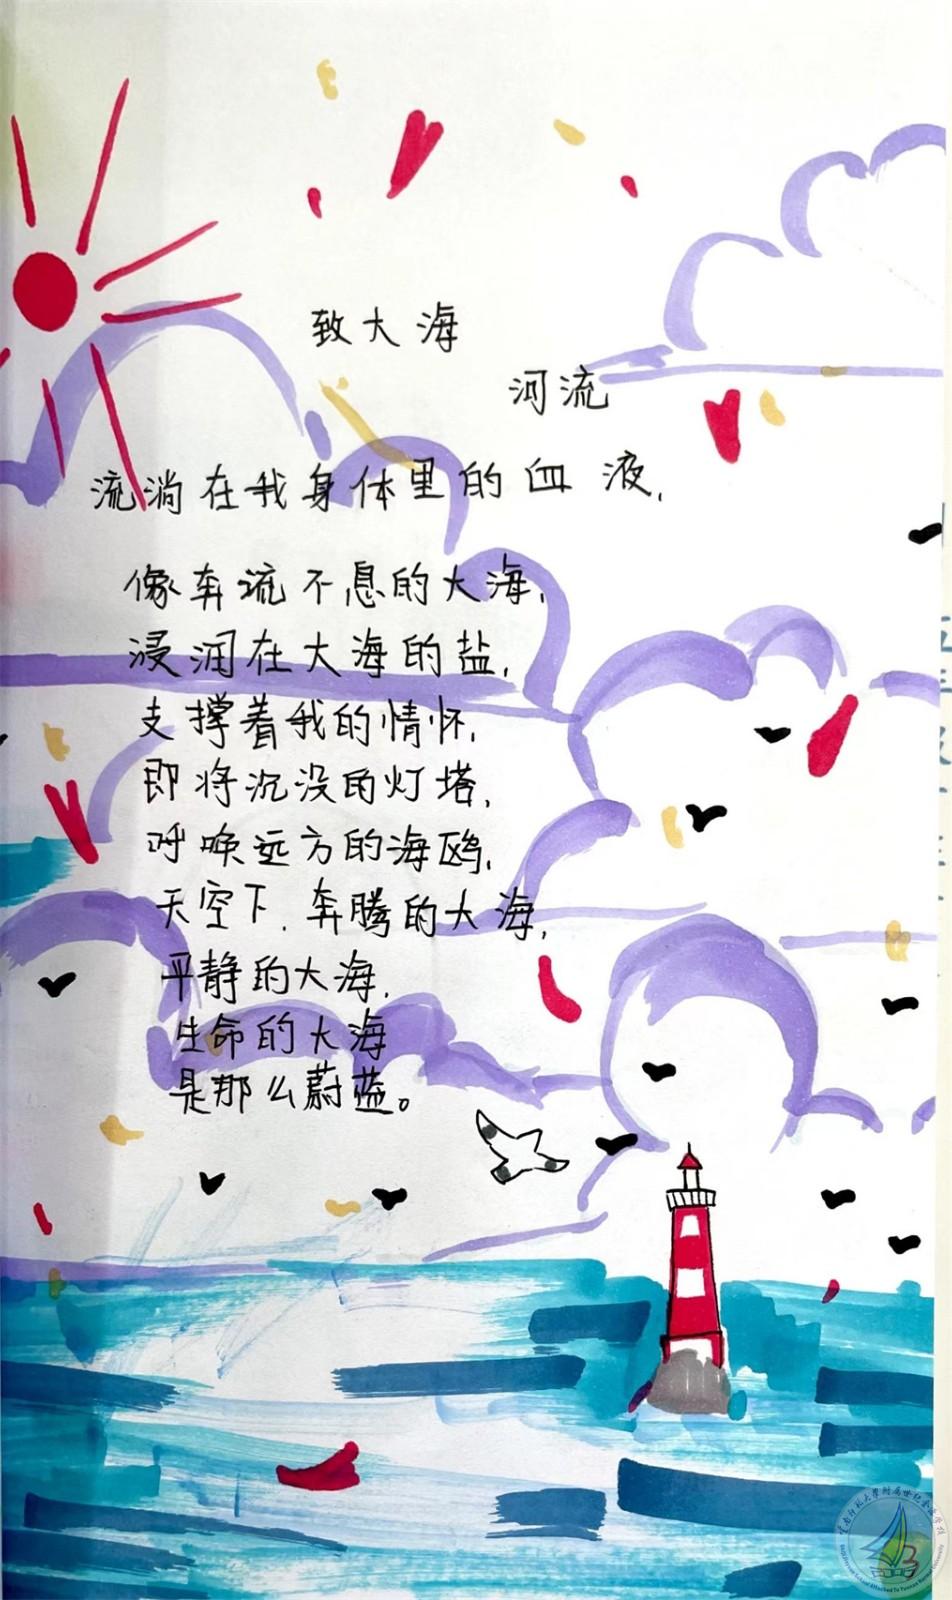 致大海
河流
流淌在我身体里的血液,
像奔流不息的大海,
浸润在大海的盐,
支撑着我的情怀,
即将沉没的灯塔,
呼唤远方的海鸥,
天空下.奔腾的大海,
平静的大海,
生命的大海
是那么蔚蓝。